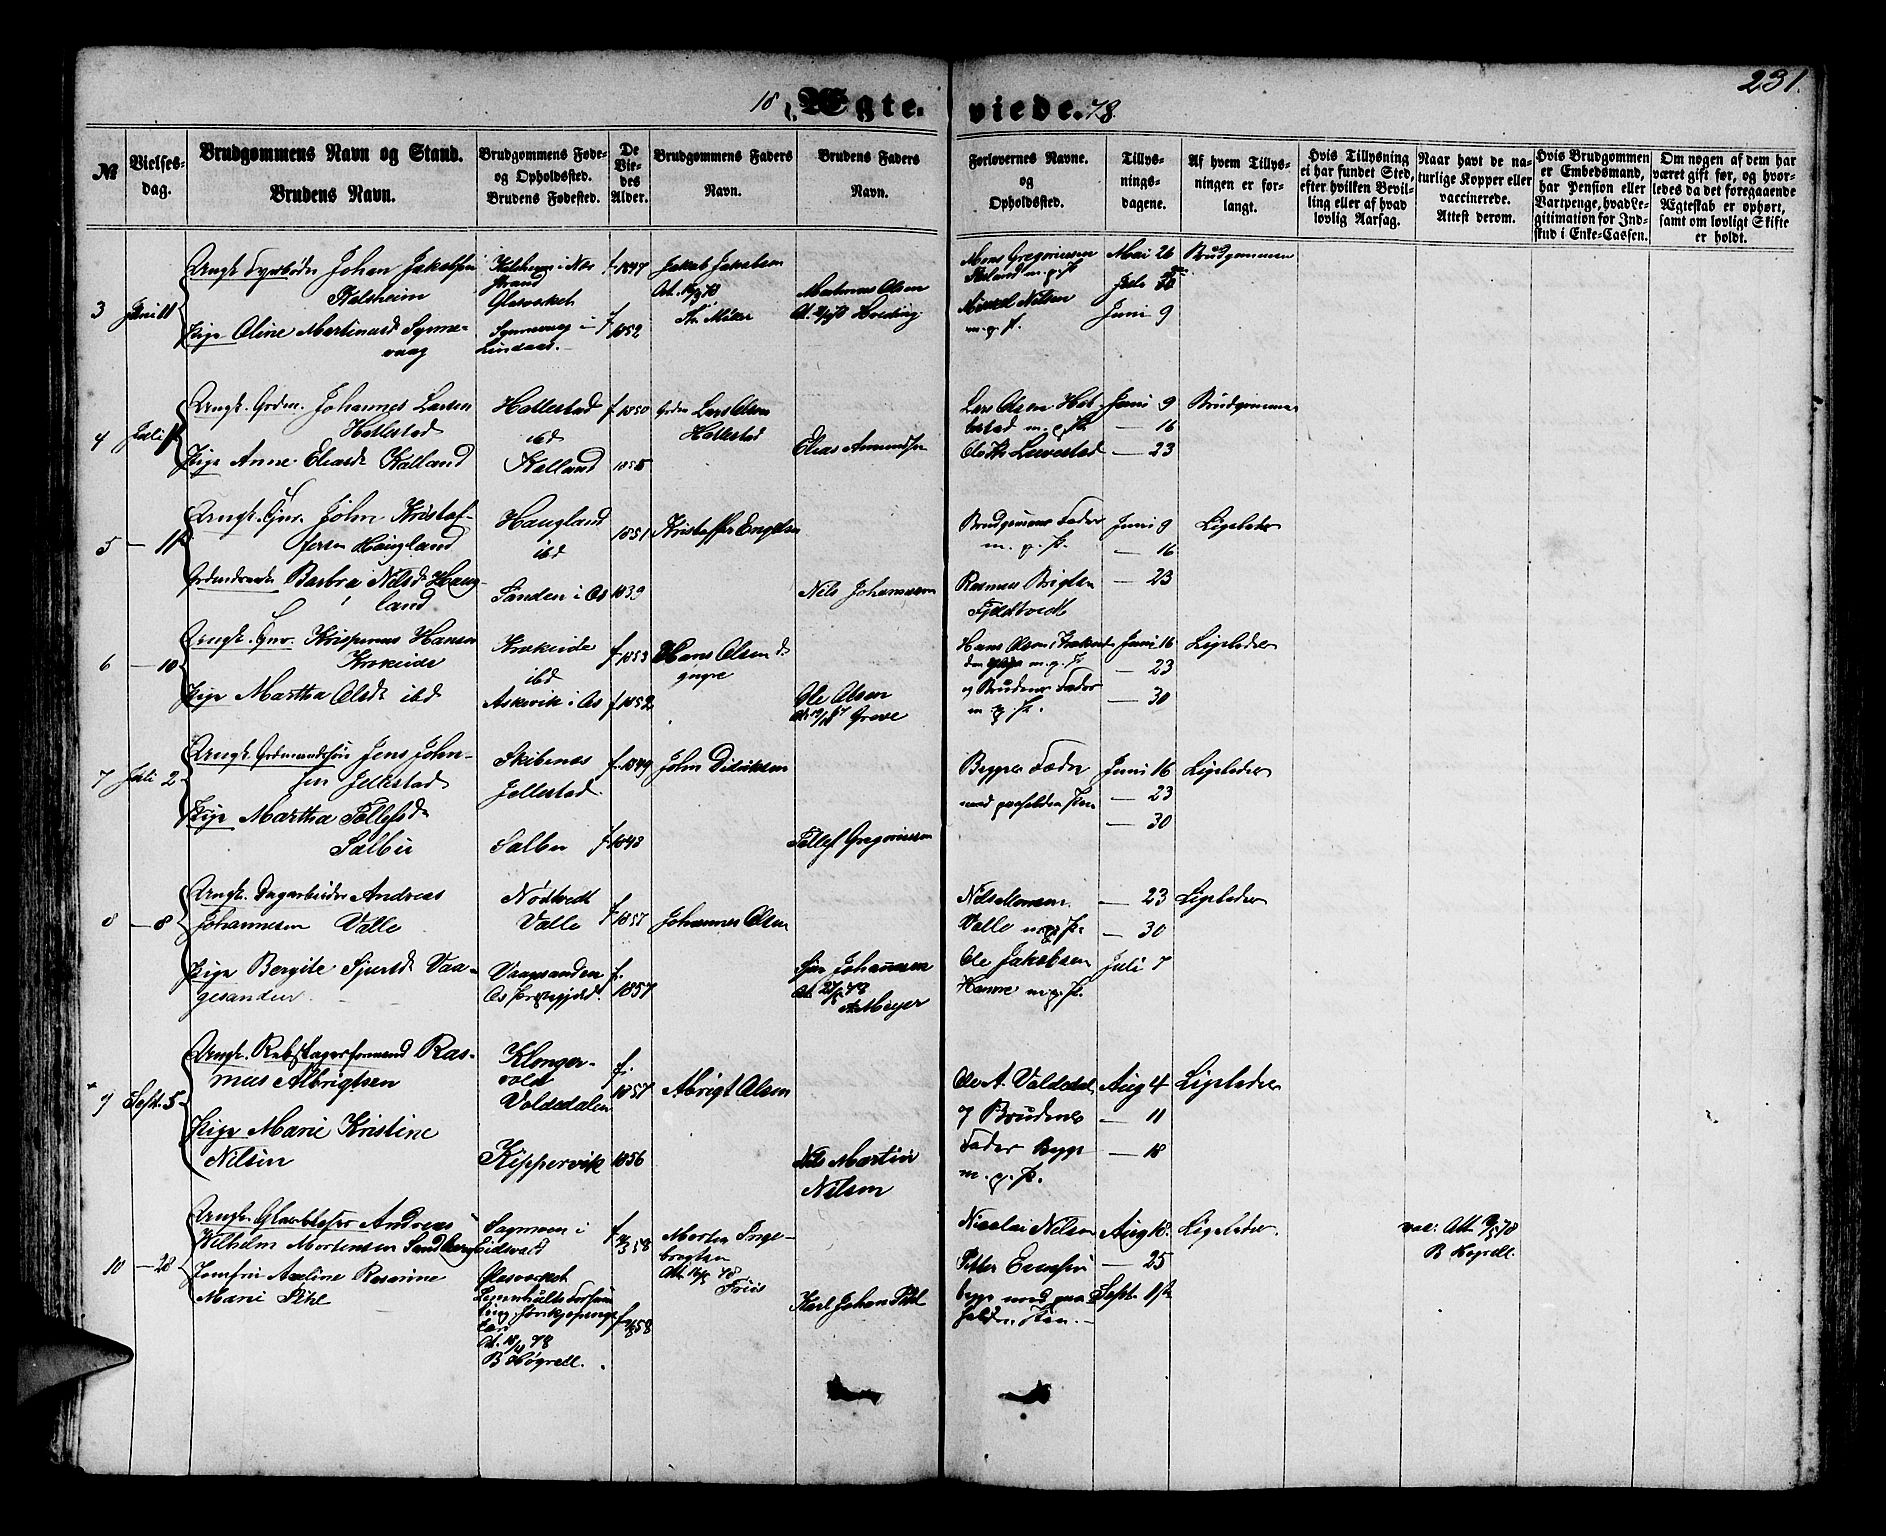 231.
18 Ægteviede. 78.
№
Vielses-
dag.
Brudgommens Navn og Stand.
Brudens Navn.
Brudgommens Føde-
og Opholdssted.
Brudens Fødested.
De
Vie-
des
Alder.
Brudgommens Faders
Navn.
Brudens Faders
Navn.
Forlovernes Navne.
og
Opholdssted.
Tillys-
nings-
dagene.
Af hvem Tillys-
ningen er for-
langt.
Hvis Tillysning
ei har fundet Sted,
efter hvilken Bevil-
ling eller af hvad
lovlig Aarsag.
Naar havt de na-
turlige Kopper eller
vaccinerede.
Attest derom.
Hvis Brudgommen
er Embedsmand,
har Pension eller
Vartpenge, hvad Le-
gitimation for Ind-
skud i Enke-Cassen.
Om nogen af dem har
været gift før, og hvor-
ledes da det foregaaende
Ægteskab er ophørt,
samt om lovligt Skifte
er holdt.
3
Juni 11
Ungk. Fyrbøder Johan Jakobsen
Pige Oline Martinusd Synne-
vaag
Strand
Glasværket
Synnevaag i
Lindaas.
f. 1847
f. 1852
Jakob Jakobsen
Martinus Olsen
Mons Gregoriussen
m. p. P.
Nilsen
m. p. P.
Mai 26
Juni 9
Brudgommen
4
Juli 1
Ungk. Grdm. Johannes Larsen
Hatlestad
Pige Anne Eliasd Kalland
Hatlestad
ibd
Kalland
f. 1850
1855
Grdm Lars Olsen
Hatlestad
Elias Amundsen
Lars Olsen Hat-
lestad m. p. P.
Juni 9
— 16
— 23
Brudgommen
5
— 1
Ungk. Gmr. John Kristof-
fersen Haugland
Barbra Nilsd. Haug-
land
Haugland
ibd
Sanden i Os
1851
1839
Kristoffer Engelsen
Nils Johannessen
Brudgommens Fader
m. p. P.
Rasmus Brigtsen
Fjeldtvedt
Juni 9
— 16
— 23
Ligeledes
6
— 10
Ungk. Gmr. Krispinus Hansen
Krokeide
Pige Martha Olsd. ibd
Krokeide
ibd
Askevik i Os
f. 1853
f. 1852
Hans Olsen d.
yngre
Ole Olsen
Greve
Hans Olsen Krokeide
den yngre m. p. P.
og Brudens Fader
m. p. P.
Juni 16
— 23
— 30
Ligeledes
7
Juli 2
Ungk. Grdmandssøn Jens John-
sen Jellestad
Pige Martha Tollefsd.
Salbu
Skibenes
Jellestad.
Salbu
f. 1849
f. 1848
John Didriksen
Tollef Gregoriussen
Begges Fædre
med paaholden Pen
Juni 16
— 23
— 30
Ligeledes
8
— 8
Ungk. Dagarbeider Andreas
Johannesen Valle
Pige Bergite Sjursd Vaa-
gesanden
Nødtvedt
Valle
Vaagsanden
Os Præstegjeld.
f. 1857
f. 1857
Johannes Olsen
Sjur Johannesen
A Meyer
Nils Monsen
Valle m. p. P.
Ole Jakobsen
Hamre m. p. P.
— 23
— 30
Juli 7
Ligeledes
9
Sept. 5
Ungk. Rebslagerformand Ras-
mus Albrigtsen
Pige Marie Kristine
Nilsen
Klonger-
vold
Valdedalen
Kippervik
f. 1857
1856
Abrigt Olsen
Nils Martin
Nilsen
Ole A. Valdedal
og Brudens
Fader Begge
m. p. P.
Aug 4
— 11
— 18
Ligeledes
10
— 28
Ungk. Glasblæser Andreas
Wilhelm Mortensen Sandberg
Jomfru Axeline Rosarine
Marie Pihl
Sagmoen i
Eidsvold
Glasværket
B Høgrell.
58
58
Morten Inge-
brigtsen
Friis
Karl Johan Pihl
Nicolai Nilsen
Petter Evensen
begge med paa-
holden Pen.
Aug 18.
— 25
Sept. 1st
Ligeledes.
vac: Att. 78
B Høgrell.